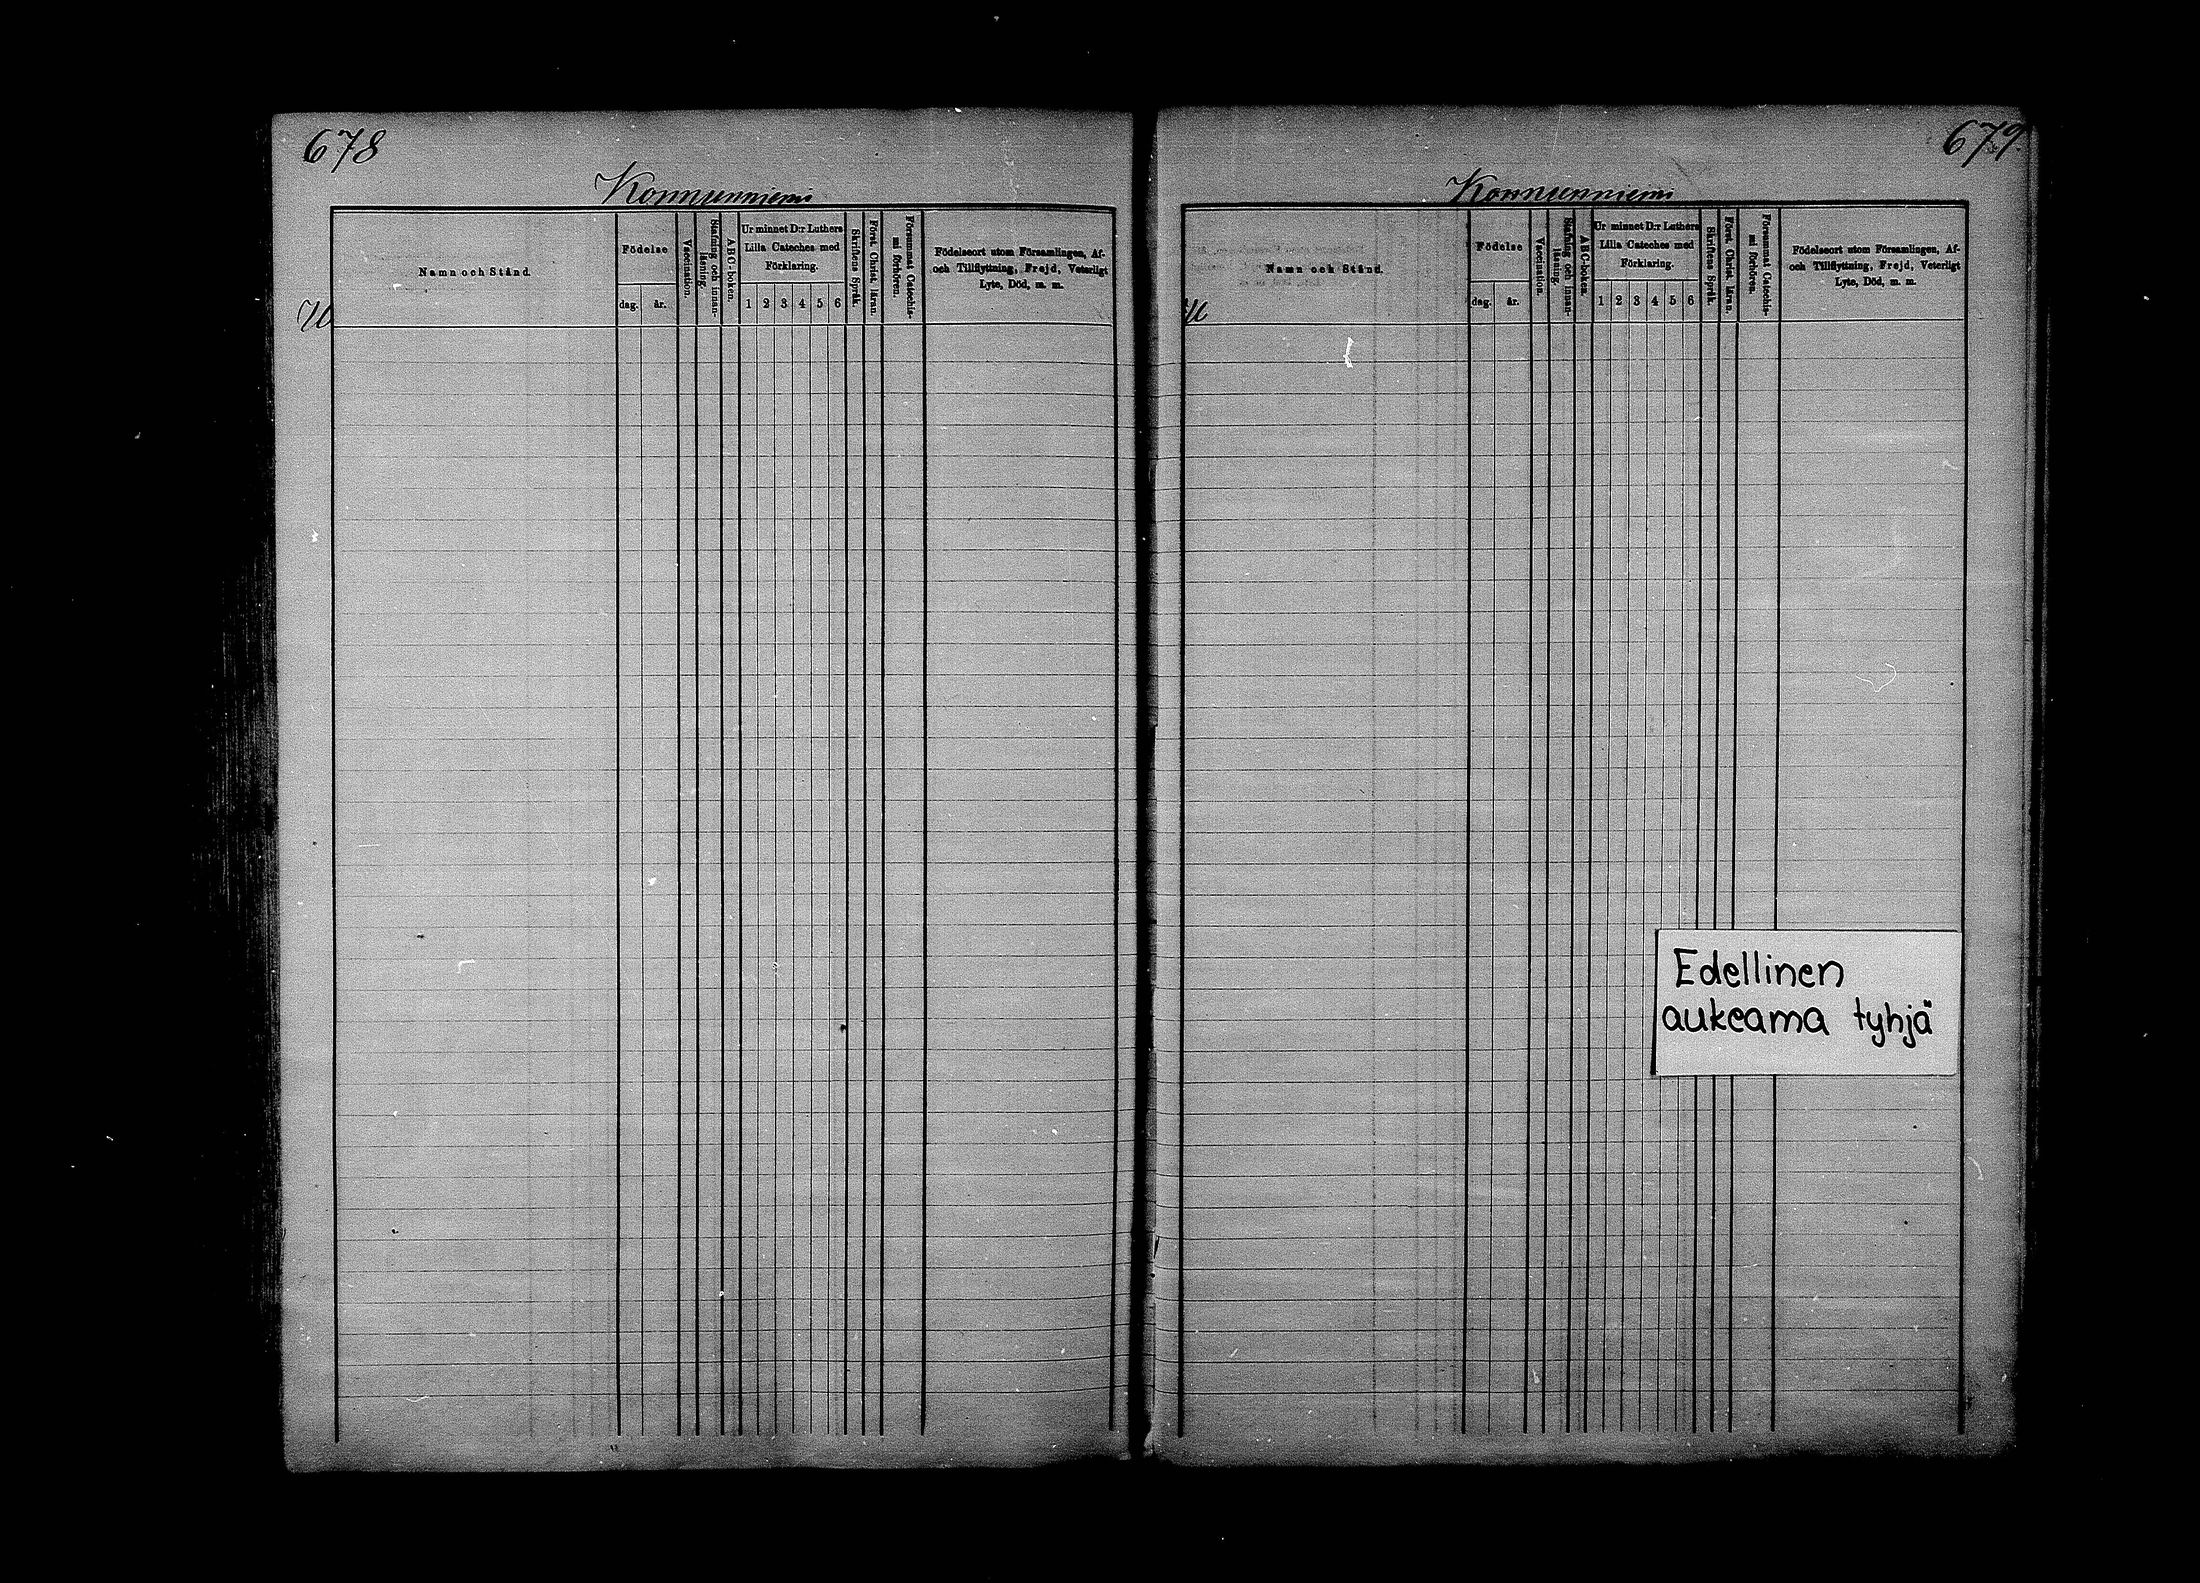 678
Konnunniemi
Namn och Stånd.
Födelse
dag.
år.
Vaccination.
Stafning och innan-
läsning.
ABC-boken.
Ur minnet D:r Luthers
Lilla Cateches med
Förklaring.
1 2 3 4 5 6
Skriftens Språk.
Först. Christ. läran.
Försummat Catechis-
mi förhören.
Födelseort utom Församlingen, Af-
och Tillflyttning, Frejd, Veterligt
Lyte, Död, m. m.
679
Konnunniemi
Namn och Stånd.
Födelse
dag.
år.
Vaccination.
Stafning och innan-
läsning.
ABC-boken.
Ur minnet D:r Luthers
Lilla Cateches med
Förklaring.
1 2 3 4 5 6
Skriftens Språk.
Först. Christ. läran.
Försummat Catechis-
mi förhören.
Födelseort utom Församlingen, Af-
och Tillflyttning, Frejd, Veterligt
Lyte, Död, m. m.
Edellinen
aukeama tyhjä